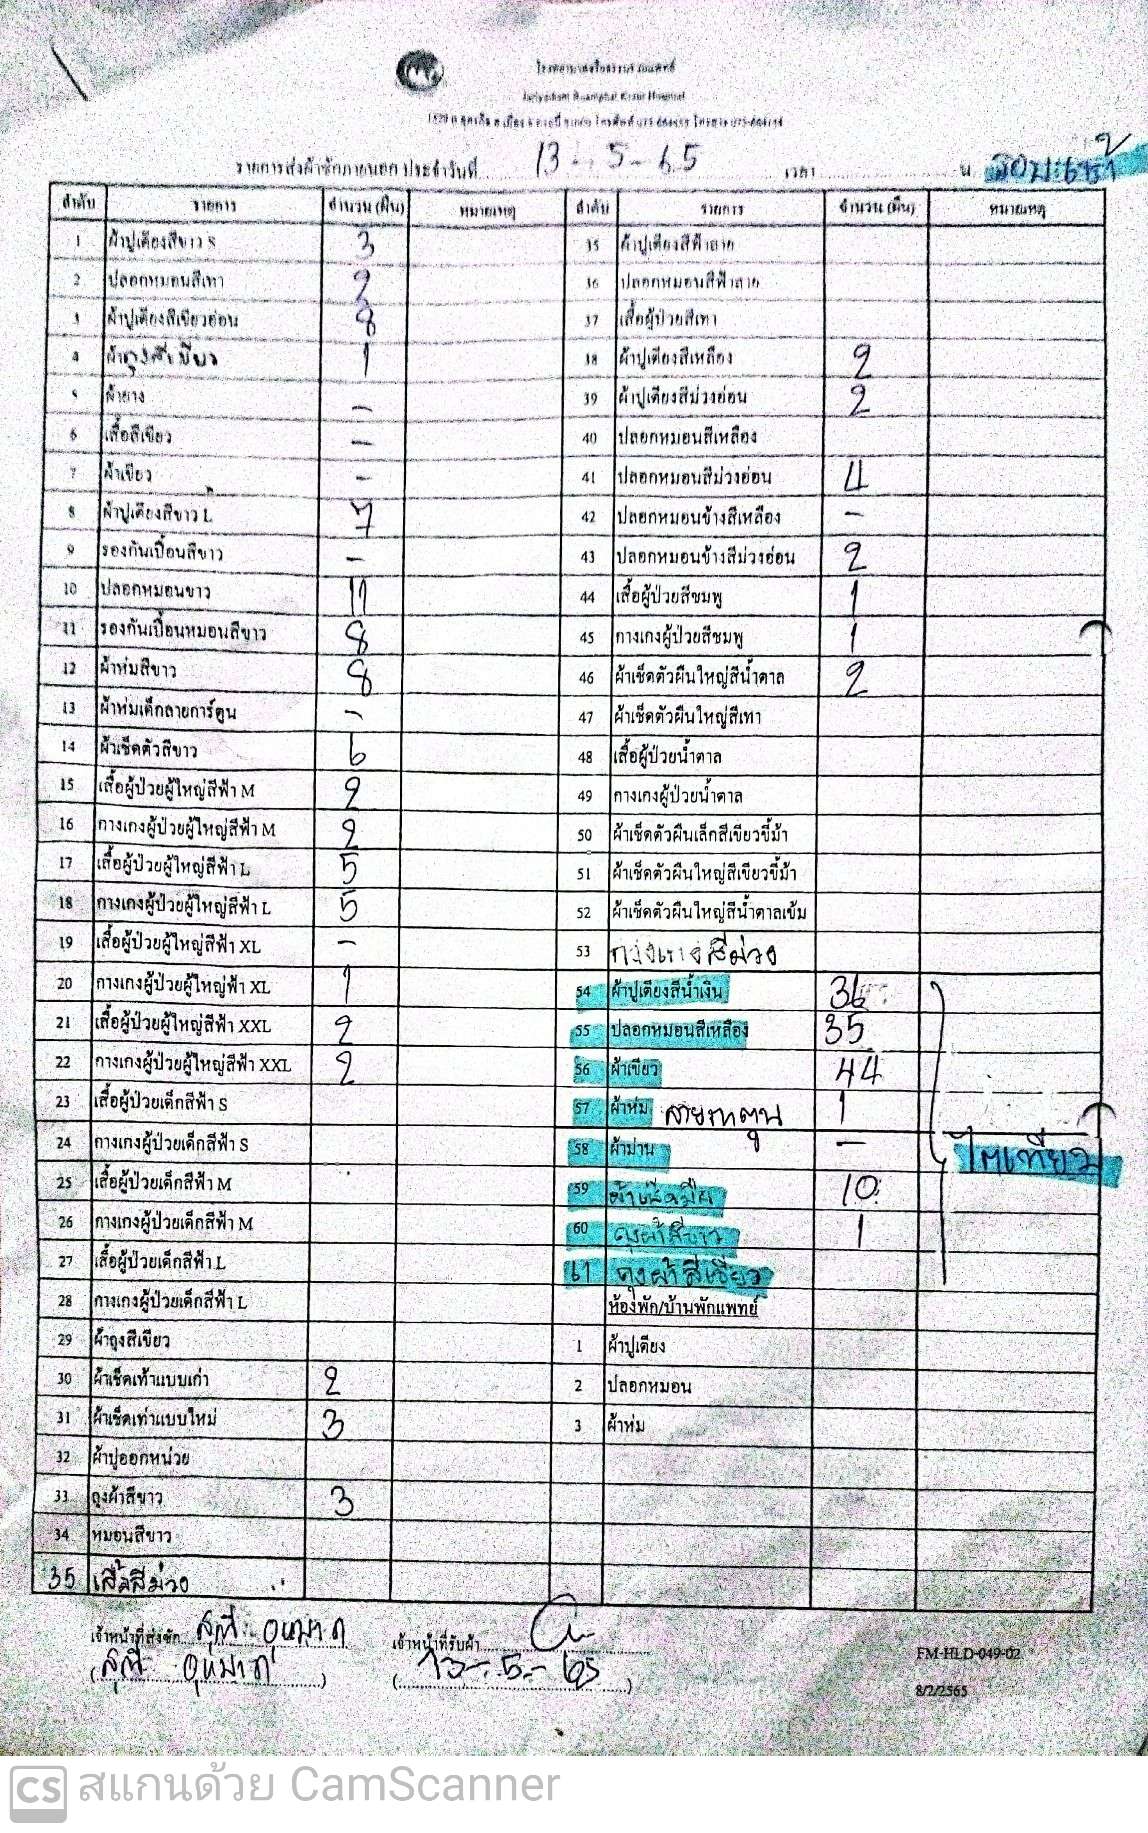 รายการส่งผ้าซักภายนอก ประจำวันที่ 13-5-65 เวลา น. รอบเช้า
ลำดับ รายการ จำนวน (ผืน) หมายเหตุ ลำดับ รายการ จำนวน (ผืน) หมายเหตุ
1 ผ้าปูเตียงสีขาว S 3 35 ผ้าปูเตียงสีฟ้าลาย
2 ปลอกหมอนสีเทา 2 36 ปลอกหมอนสีฟ้าลาย
3 ผ้าปูเตียงสีเขียวอ่อน 8 37 เสื้อผู้ป่วยสีเทา
4 ผ้าถุงสีเขียว 1 38 ผ้าปูเตียงสีเหลือง 2
5 ผ้ายาง - 39 ผ้าปูเตียงสีม่วงอ่อน 2
6 เสื้อสีเขียว - 40 ปลอกหมอนสีเหลือง
7 ผ้าเขียว - 41 ปลอกหมอนสีม่วงอ่อน 4
8 ผ้าปูเตียงสีขาว L 7 42 ปลอกหมอนข้างสีเหลือง -
9 รองกันเปื้อนสีขาว - 43 ปลอกหมอนข้างสีม่วงอ่อน 2
10 ปลอกหมอนขาว 11 44 เสื้อผู้ป่วยสีชมพู 1
11 รองกันเปื้อนหมอนสีขาว 8 45 กางเกงผู้ป่วยสีชมพู 1
12 ผ้าห่มสีขาว 8 46 ผ้าเช็ดตัวผืนใหญ่สีน้ำตาล 2
13 ผ้าห่มเด็กลายการ์ตูน - 47 ผ้าเช็ดตัวผืนใหญ่สีเทา
14 ผ้าเช็ดตัวสีขาว 6 48 เสื้อผู้ป่วยน้ำตาล
15 เสื้อผู้ป่วยผู้ใหญ่สีฟ้า M 2 49 กางเกงผู้ป่วยน้ำตาล
16 กางเกงผู้ป่วยผู้ใหญ่สีฟ้า M 2 50 ผ้าเช็ดตัวผืนเล็กสีเขียวขี้ม้า
17 เสื้อผู้ป่วยผู้ใหญ่สีฟ้า L 5 51 ผ้าเช็ดตัวผืนใหญ่สีเขียวขี้ม้า
18 กางเกงผู้ป่วยผู้ใหญ่สีฟ้า L 5 52 ผ้าเช็ดตัวผืนใหญ่สีน้ำตาลเข้ม
19 เสื้อผู้ป่วยผู้ใหญ่สีฟ้า XL - 53 กางเกงสีม่วง
20 กางเกงผู้ป่วยผู้ใหญ่ฟ้า XL 1 54 ผ้าปูเตียงสีน้ำเงิน 36
21 เสื้อผู้ป่วยผู้ใหญ่สีฟ้า XXL 2 55 ปลอกหมอนสีเหลือง 35
22 กางเกงผู้ป่วยผู้ใหญ่สีฟ้า XXL 2 56 ผ้าเขียว 44
23 เสื้อผู้ป่วยเด็กสีฟ้า S 57 ผ้าห่ม ลายาตูน 1
24 กางเกงผู้ป่วยเด็กสีฟ้า S 58 ผ้าม่าน - ไตเทียม
25 เสื้อผู้ป่วยเด็กสีฟ้า M 59 ผ้าเช็ดมือ 10
26 กางเกงผู้ป่วยเด็กสีฟ้า M 60 ถุงผ้าสีขาว 1
27 เสื้อผู้ป่วยเด็กสีฟ้า L 61 ถุงผ้าสีเขียว
28 กางเกงผู้ป่วยเด็กสีฟ้า L ห้องพัก/บ้านพักแพทย์
29 ผ้าถุงสีเขียว 1 ผ้าปูเตียง
30 ผ้าเช็ดเท้าแบบเก่า 2 2 ปลอกหมอน
31 ผ้าเช็ดเท่าแบบใหม่ 3 3 ผ้าห่ม
32 ผ้าปูออกหน่วย
33 ถุงผ้าสีขาว 3
34 หมอนสีขาว
35 เสื้อสีม่วง
เจ้าหน้าที่ส่งซัก เจ้าหน้าที่รับผ้า FM-HLD-049-02
13-5-65 8/2/2565
CS สแกนด้วย CamScanner